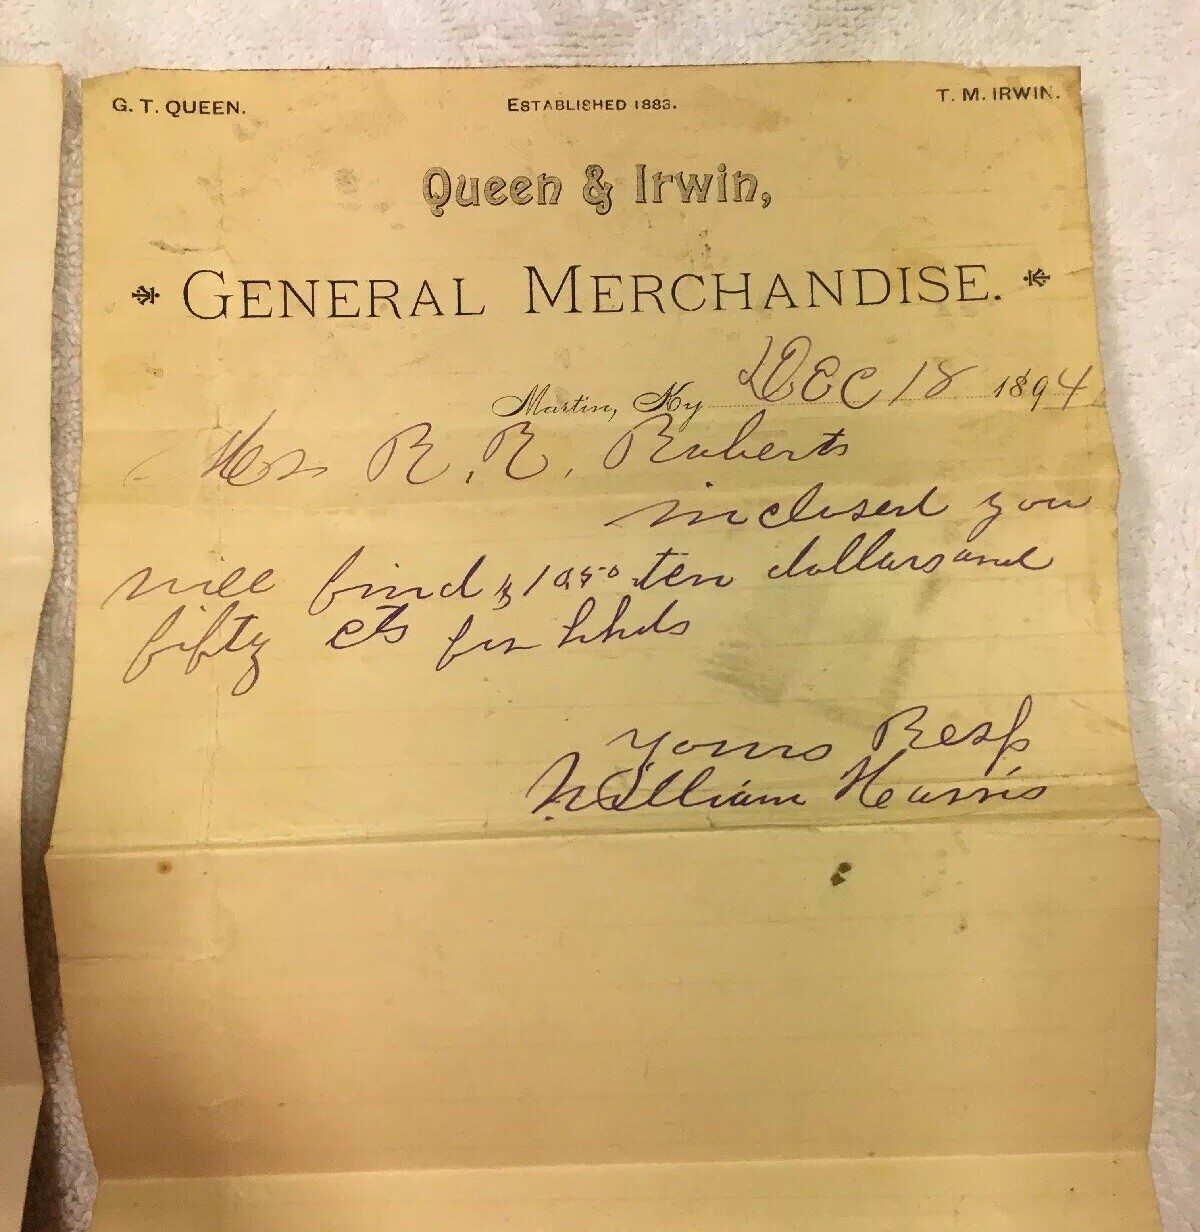 G. T. QUEEN. ESTABLISHED 1883. T. M. IRWIN.
Queen & Irwin,
GENERAL MERCHANDISE.
Martin, Ky Dec 18 1894
R. R. Roberts
inclosed you
will find $10.50 ten dollars and
fifty cts for hhds
Yours Resp
William Harris